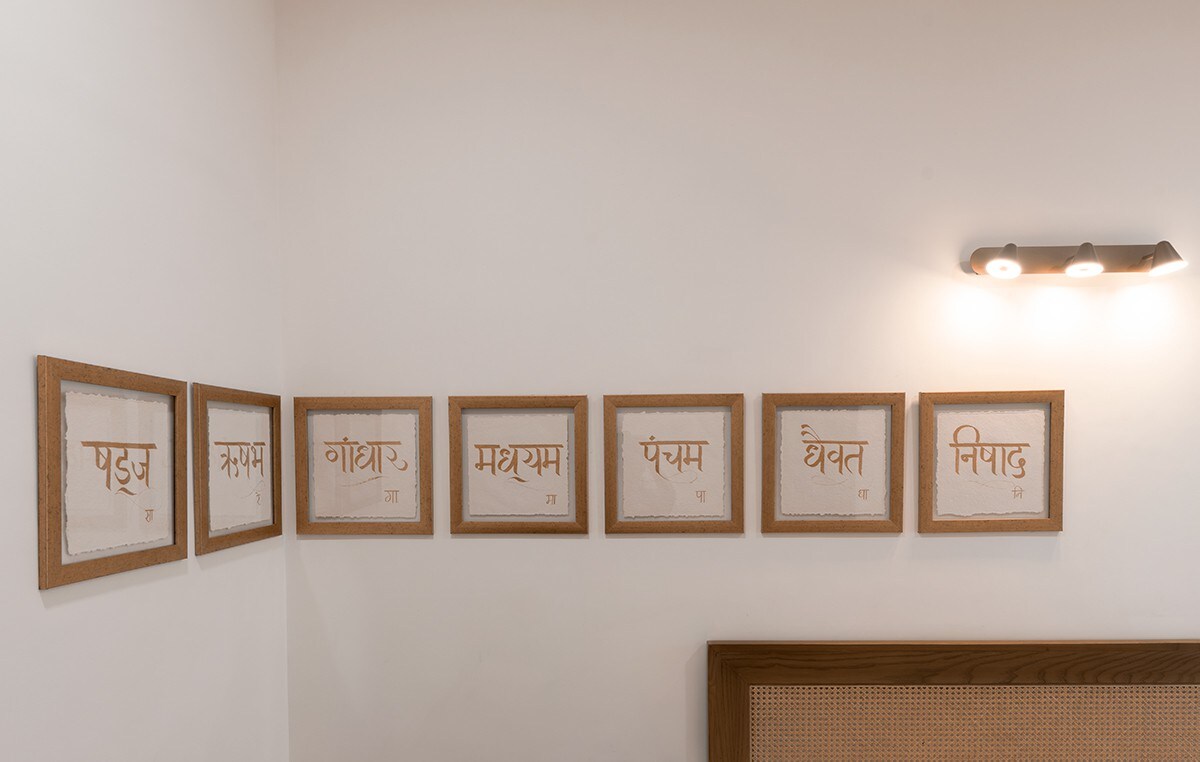 षड्ज
सा
ऋषभ
रे
गांधार
गा
मध्यम
मा
पंचम
पा
धैवत
धा
निषाद
नि